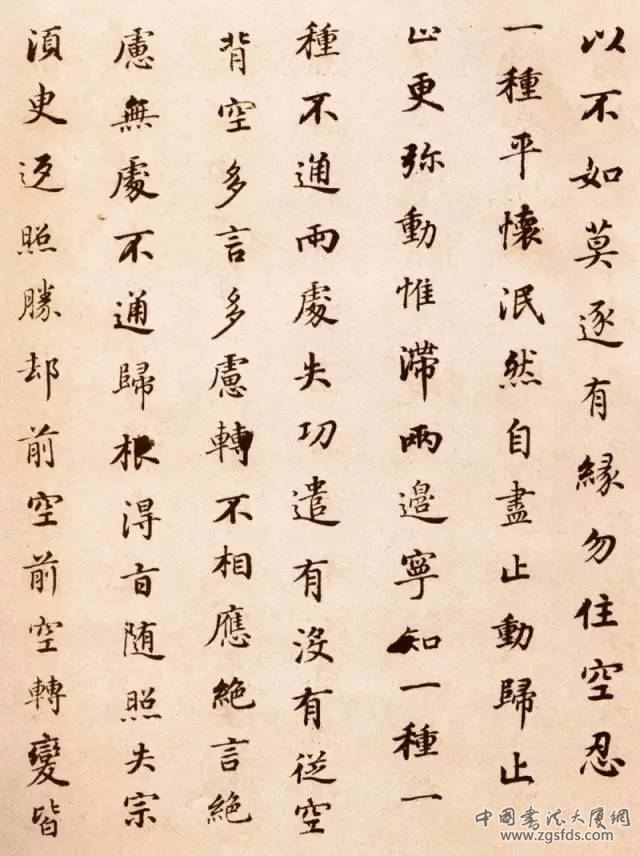 以不如莫逐有緣勿住空忍
一種平懷泯然自盡止動歸止
止更弥動惟滞兩邉寧知一種一
種不通兩處失功遣有没有從空
背空多言多慮轉不相應絶言絶
慮無處不通歸根得旨随照失宗
湏臾返照勝却前空前空轉變皆
中国書法大厦網
www.zgsfds.com